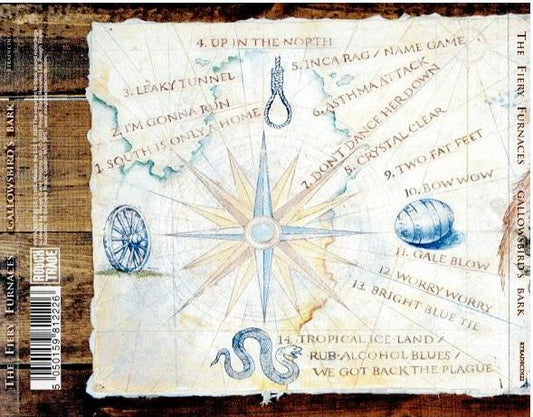 4. UP IN THE NORTH
5. INCA RAG / NAME GAME
3. LEAKY TUNNEL
6. ASTHMA ATTACK
2. I'M GONNA RUN
7. DON'T DANCE HER DOWN
1 SOUTH IS ONLY A HOME
8. CRYSTAL CLEAR
9. TWO FAT FEET
10. BOW WOW
11. GALE BLOW
12. WORRY WORRY
13. BRIGHT BLUE TIE
14. TROPICAL ICE-LAND /
RUB-ALCOHOL BLUES /
WE GOT BACK THE PLAGUE
THE FIERY FURNACES GALLOWSBIRD'S BARK
THE FIERY FURNACES GALLOWSBIRD'S BARK
ROUGH
TRADE
5 050159 812226